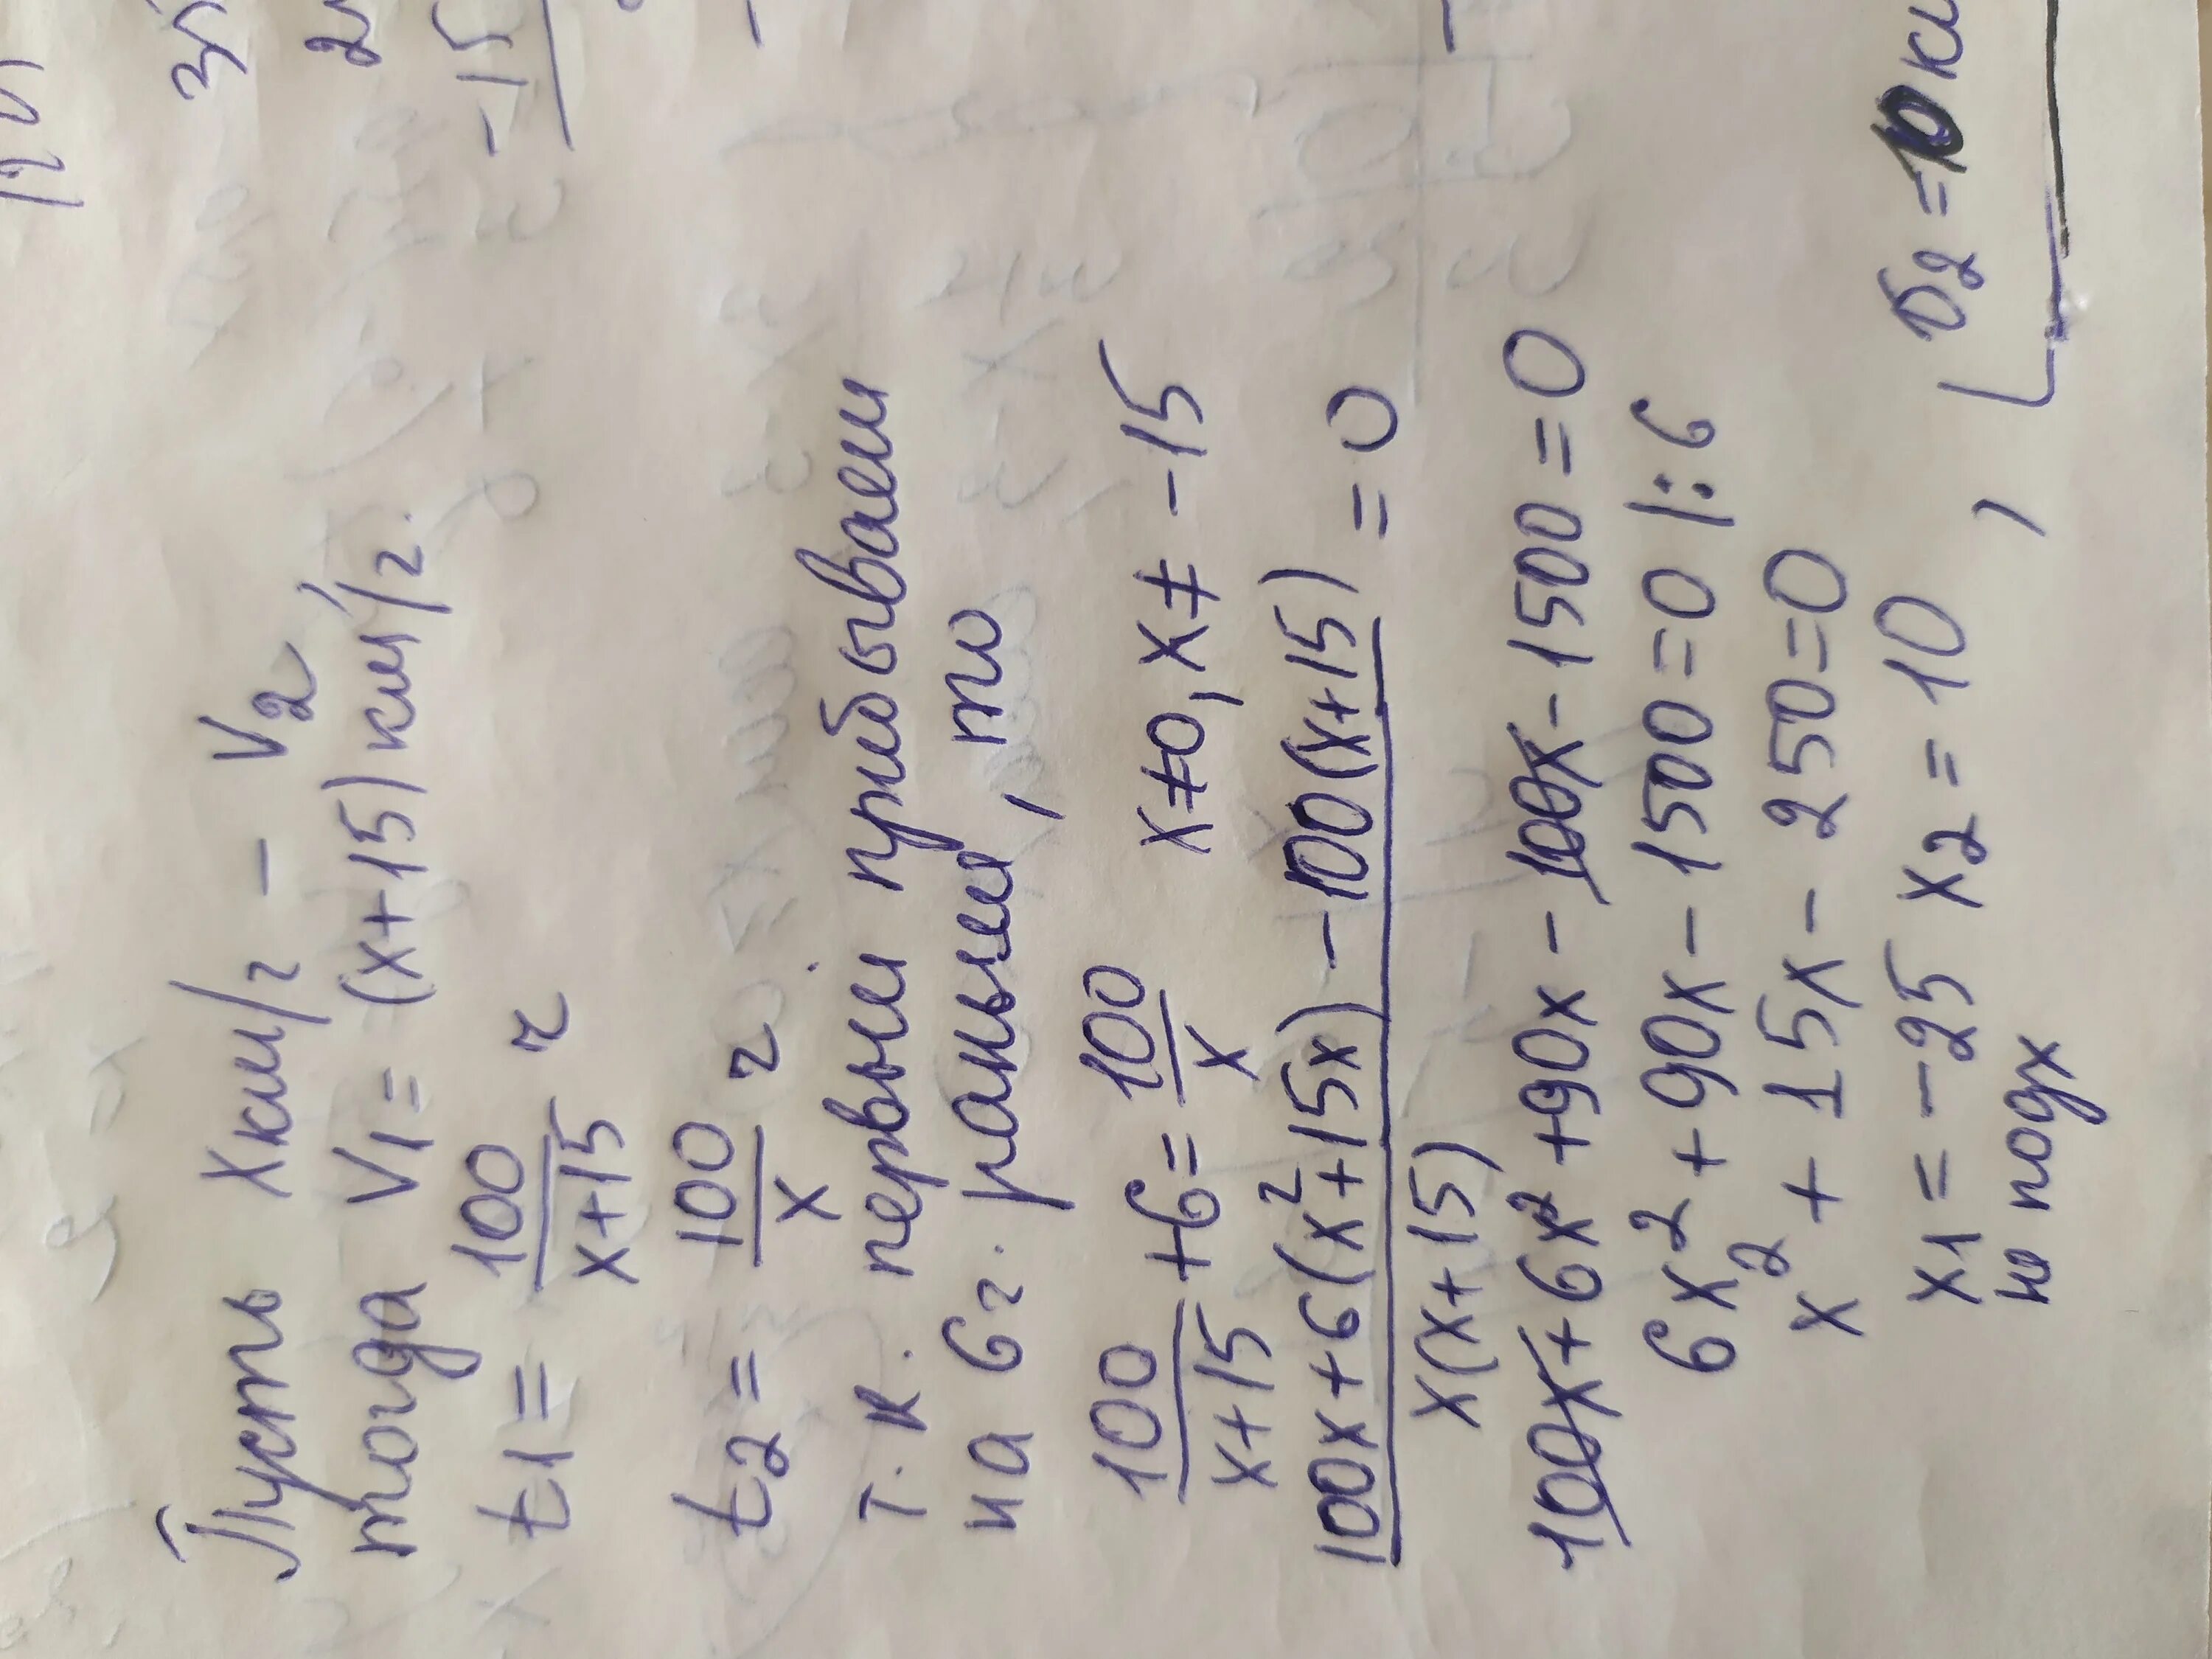 Пусть x км/г - V2
тогда V1 = (x+15) км/г.
t1 = 100/(x+15) г
t2 = 100/x г
т.к. первый прибывает
на 6г. раньше, то
100/(x+15) + 6 = 100/x x≠0, x≠ -15
(100x+6(x²+15x)-100(x+15))/(x(x+15)) = 0
100x+6x²+90x-100x-1500=0
6x²+90x-1500=0 |:6
x²+15x-250=0
x1=-25 x2=10, V2=10 км
не подх